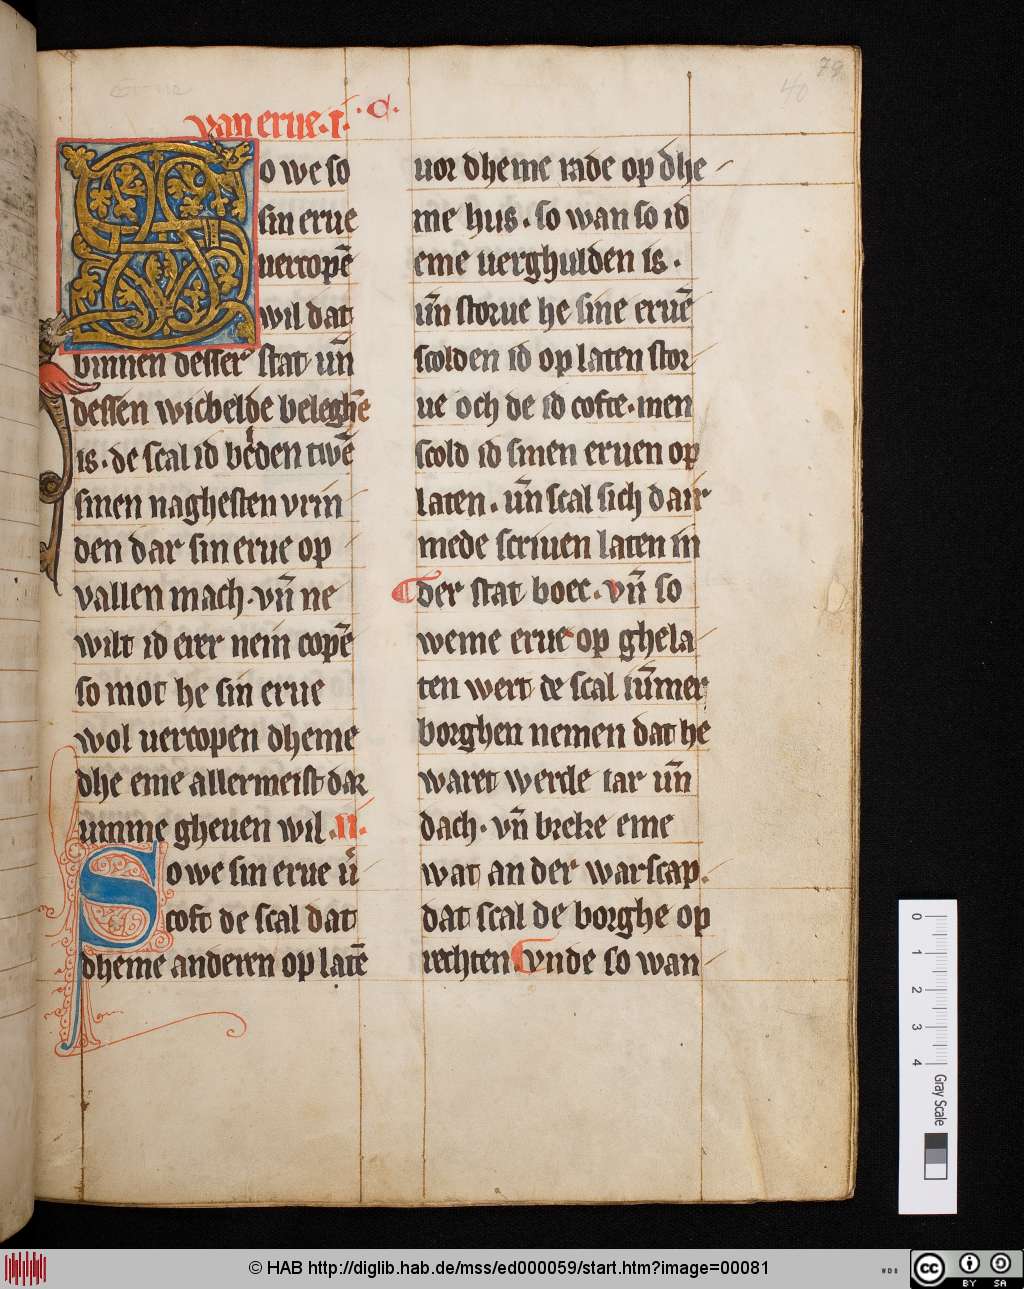 van erue · I · C ·
So we so
sin erue
vercopē
wil dat
binnen desser stat uñ
dessen wicbelde beleghē
is · de scal id beden twē
sinen naghesten vrin
den dar sin erue op
vallen mach · vñ ne
wilt id erer nein copē
so mot he sin erue
wol uercopen dheme
dhe eme allermeist dar
umme gheuen wil · II ·
So we sin erue ů
coft de scal dat
dheme anderen op latē
uor dheme rade op dhe
me hus · so wan so id
eme uerghulden is ·
uñ storue he sine eruē
scolden id op laten stor
ue och de id cofte · men
scold id sinen eruen op
laten · uñ scal sich dar
mede scriuen laten in
der stat boec · vñ so
weme erue op ghela
ten wert de scal iūmer
borghen nemen dat he
waret werde iar uñ
dach · vñ breke eme
wat an der warscap ·
dat scal de borghe op
rechten · vnde so wan
79
40
0
1
2
3
4
Gray Scale
© HAB http://diglib.hab.de/mss/ed000059/start.htm?image=00081
WDB
cc
BY SA